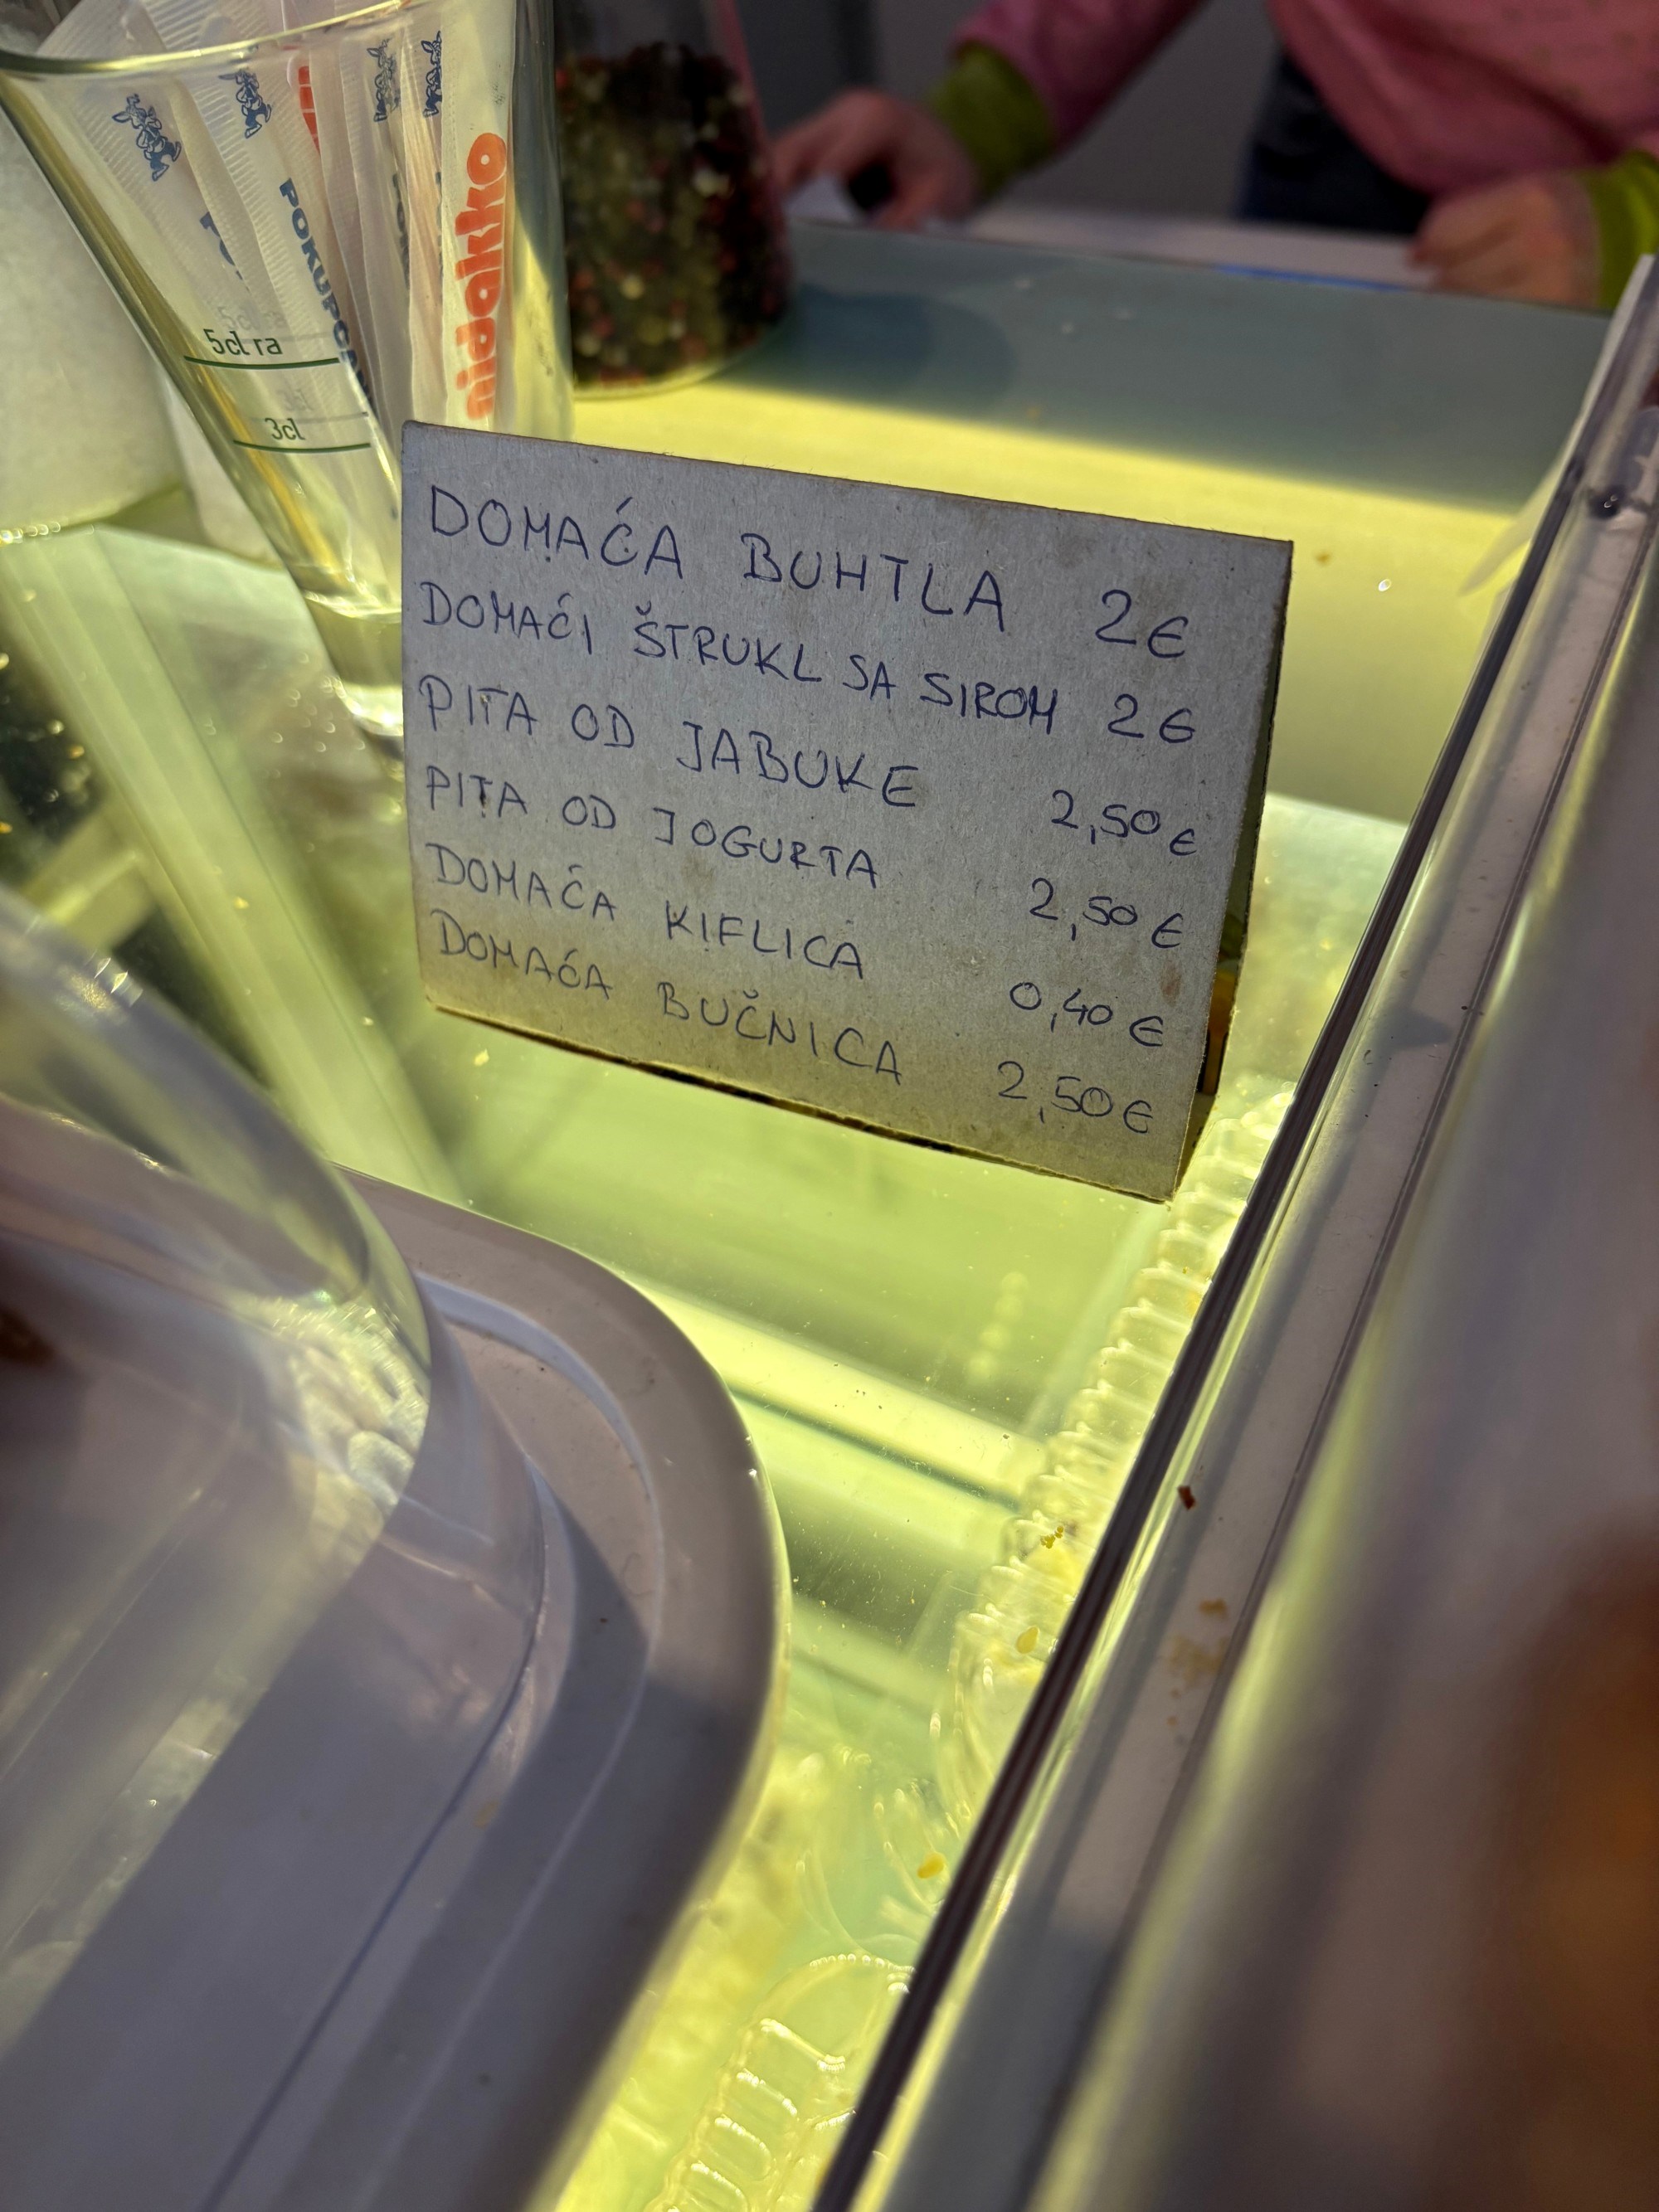 POKUPC
nidakko
5cl ra
3cl
DOMAĆA BUHTLA 2€
DOMAĆI ŠTRUKL SA SIROM 2€
PITA OD JABUKE 2,50€
PITA OD JOGURTA 2,50€
DOMAĆA KIFLICA 0,40€
DOMAĆA BUČNICA 2,50€